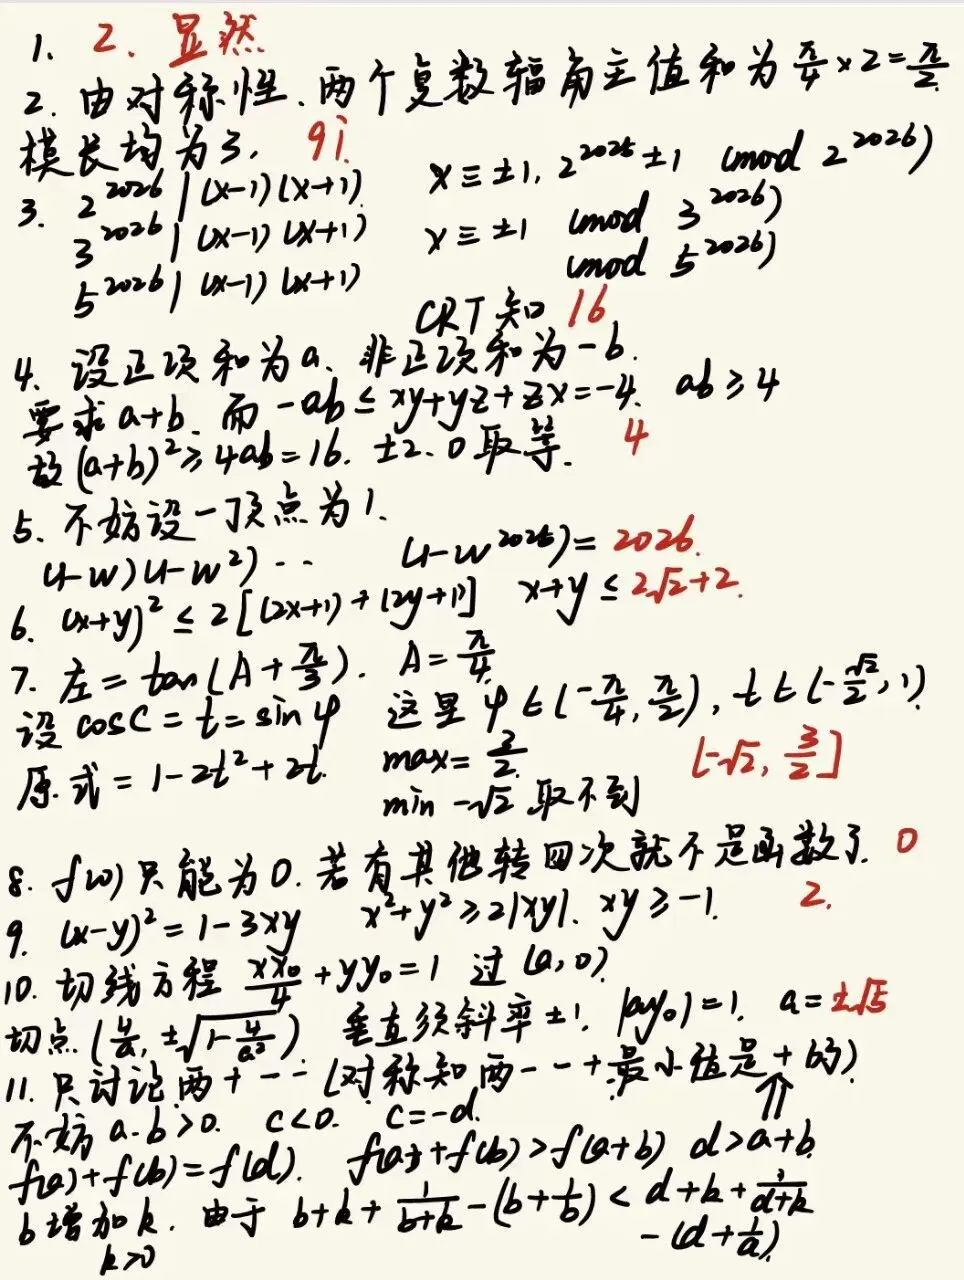 1. 2. 显然
2. 由对称性、两个复数辐角主值和为 π/4 × 2 = π/2
模长均为3. 9i.
3. 2^2026 | (x-1)(x+1) x ≡ ±1, 2^2025 ±1 (mod 2^2026)
3^2026 | (x-1)(x+1) x ≡ ±1 (mod 3^2026)
5^2026 | (x-1)(x+1) (mod 5^2026)
CRT知 16
4. 设正项和为a、非正项和为-b.
要求a+b. 而 -ab ≤ xy+yz+zx=-4. ab ≥ 4
故(a+b)² ≥ 4ab=16. ±2、0取等. 4
5. 不妨设一顶点为1.
(1-w)(1-w²)… (1-w^2025)= 2026.
6. (x+y)² ≤ 2[(2x+1)+(2y+1)] x+y ≤ 2√2+2.
7. 左=tan(A+π/3). A=π/4
设cosC=t=sinφ 这里φ∈(-π/4, π/2), t∈(-√2/2, 1)
原式=1-2t²+2t. max=3/2. [-√2, 3/2]
min -√2 取不到
8. f(0)只能为0. 若有其他转四次就不是函数了. 0
9. (x-y)²=1-3xy x²+y²≥2|xy|. xy≥-1. 2.
10. 切线方程 xx₀/4+yy₀=1 过(a,0)
切点(4/a, ±√(1-4/a²)) 垂直须斜率±1. |ay₀|=1. a=±√5
11. 只讨论两+一-(对称知两-一+最小值是+的)
不妨a.b>0. c<0. c=-d. ⇑
f(a)+f(b)=f(d). f(a)+f(b)>f(a+b) d>a+b.
b增加k. 由于 b+k+1/(b+k)-(b+1/b)<d+k+1/(d+k)
k>0 -(d+1/d)